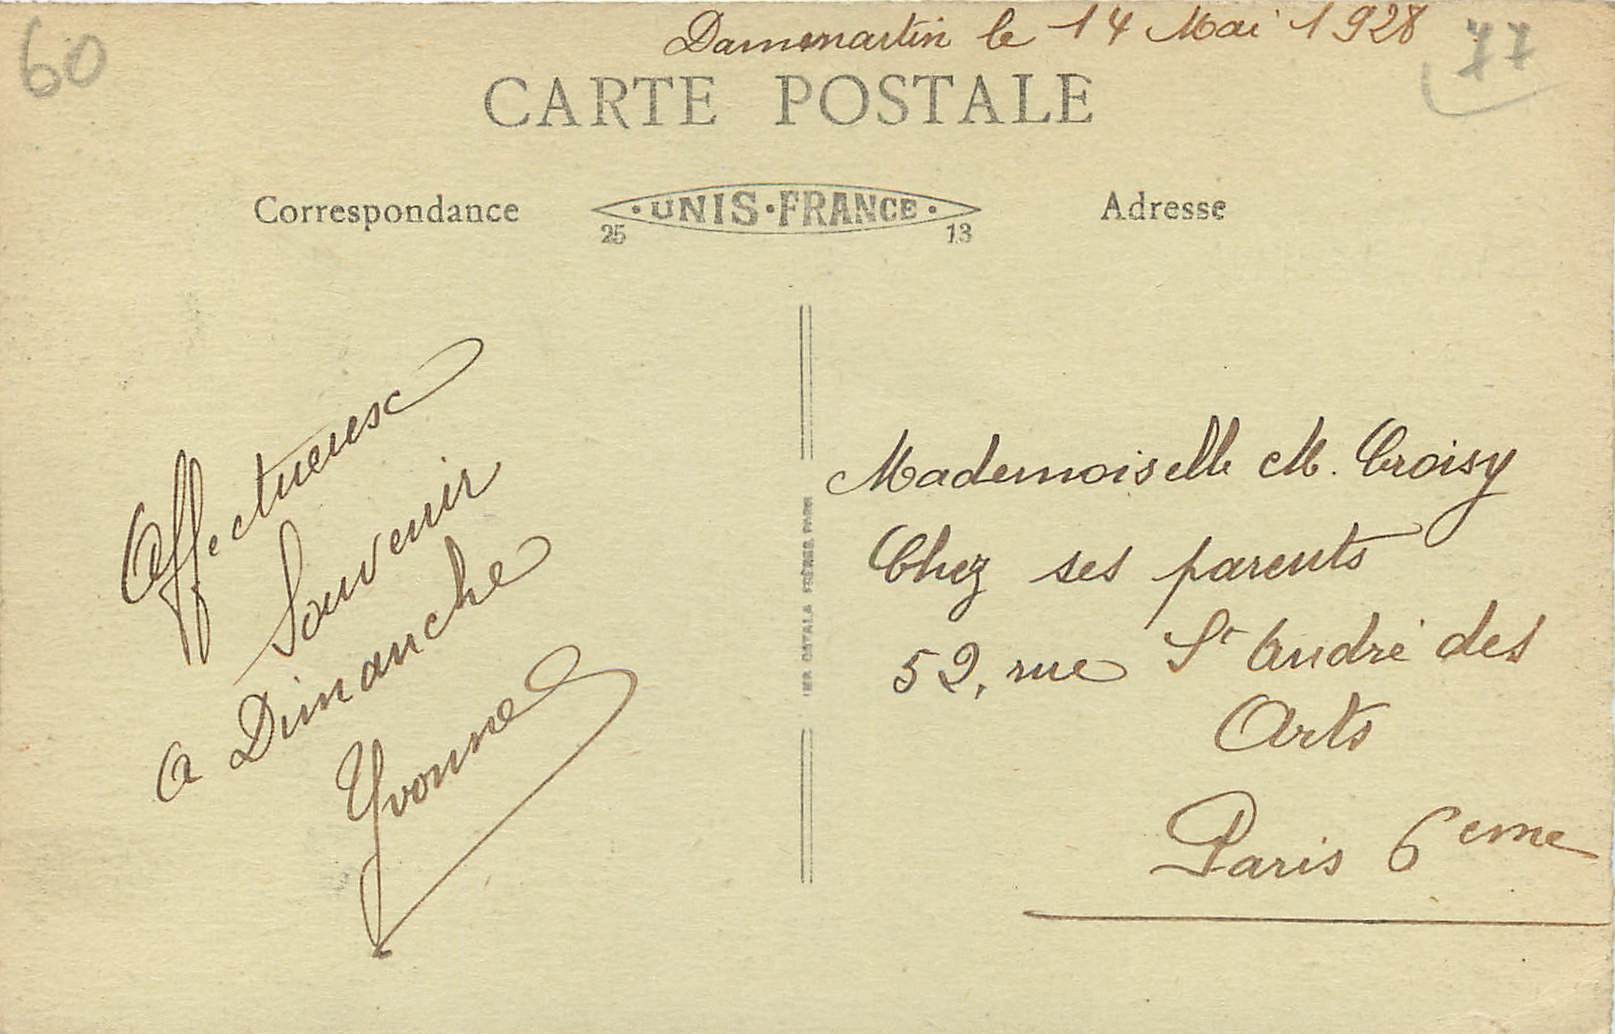 60
Dammartin le 14 Mai 1928
77
CARTE POSTALE
Correspondance
·UNIS·FRANCE·
25 13
Adresse
Affectueux
Souvenir
a Dimanche
Yvonne
IMP. CATALA FRÈRES PARIS
Mademoiselle M. Croisy
Chez ses parents
52, rue St André des
Arts
Paris 6eme